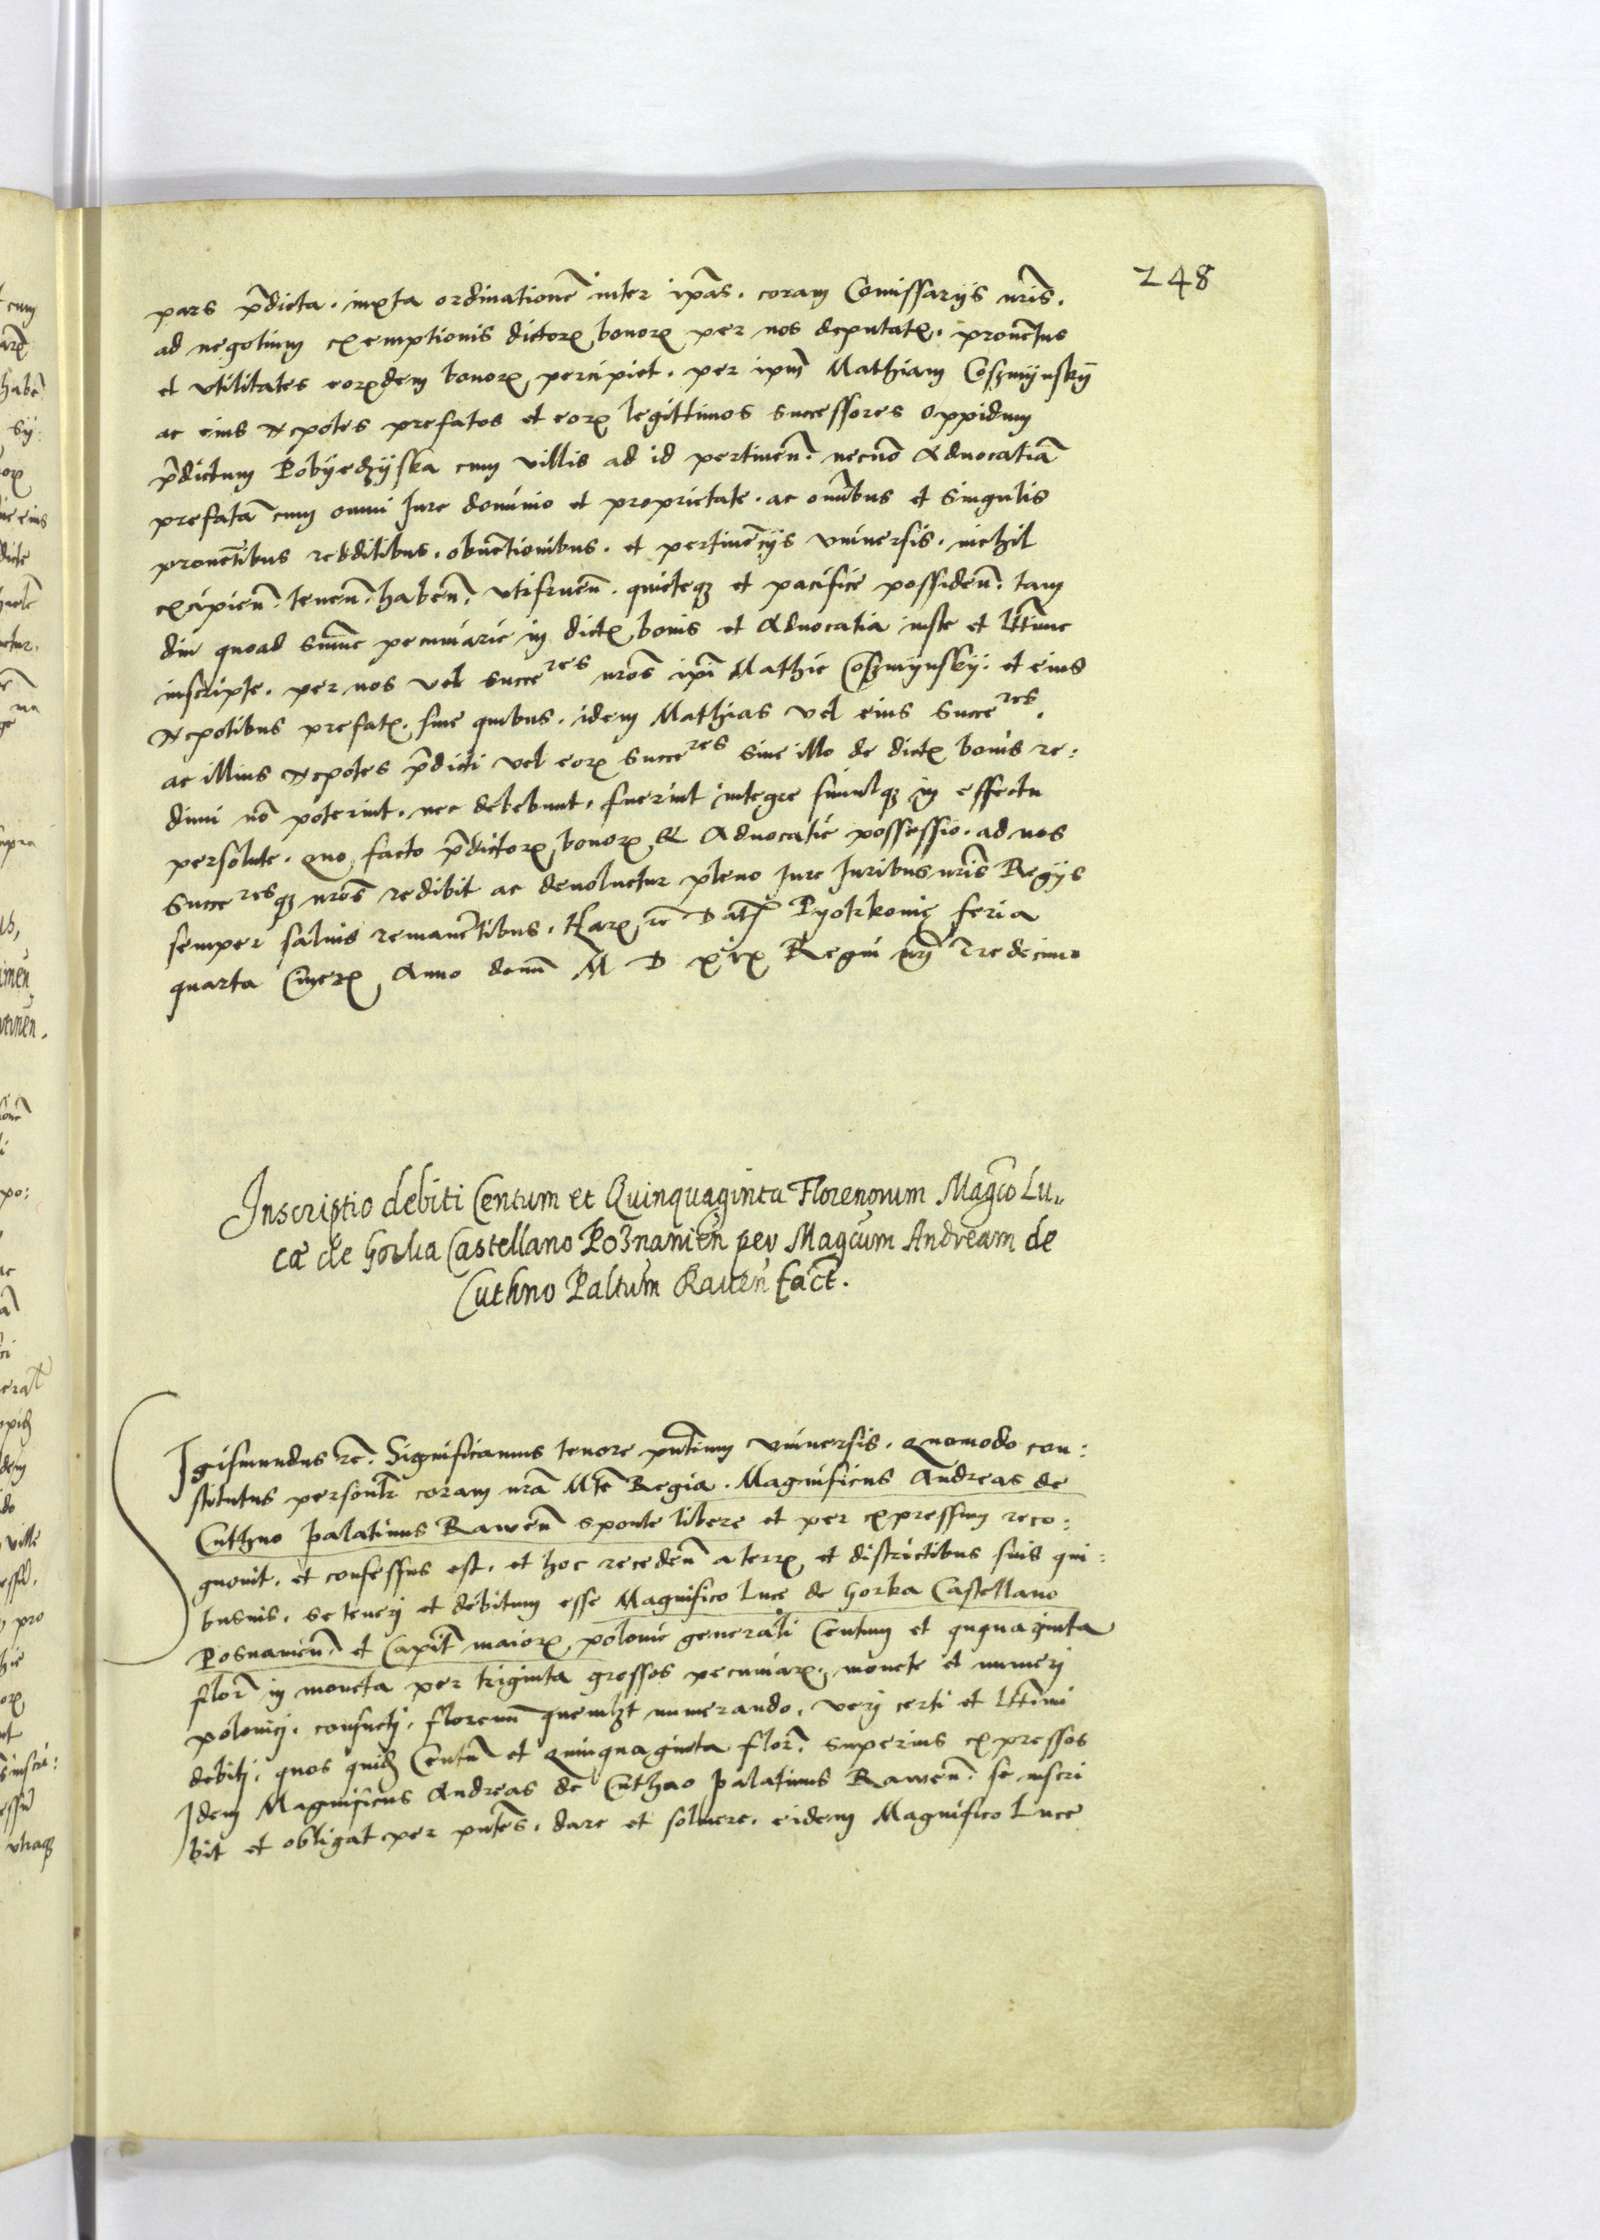 248
pars p̄dicta. iuxta ordinationē inter ip̄as. coram Comissarijs nr̄is.
ad negotium exemptionis dictorꝝ bonorꝝ per nos deputatꝭ. prouētus
et vtilitates eorꝝdem bonorꝝ percipiet. per ipm̄ Mathiam Coszmijnskij
ac eius Nepōtes prefatos et eorꝝ legittimos successores Oppidum
p̄dictum Pobÿedzÿska cum villis ad id pertineñ. necnō Aduocatiā
prefatā cum omni Iure dominio et proprietate. ac om̄ibus et singulis
prouētibus redditibus. obuētionibus. et pertinēcijs vniuersis. nichil
excipieñ. teneñ. habeñ. vtifrueñ. quieteqꝫ et pacifice possideñ. tam
diu quoad sum̄e pecuniarie in dictꝭ bonis et Aduocatia iuste et ltt̄ime
inscripte. per nos vel succeres nr̄os ip̄i Mathie Coszmijnskij. et eius
Nepotibus prefatꝭ. sine quibus. idem Mathias vel eius succeres.
ac illius Nepōtes p̄dicti vel eorꝝ succeres siue illo de dictꝭ bonis re:
dimi nō poterint. nec debebunt. fuerint integre simulqꝫ in effectu
persolute. Quo facto p̄dictorꝝ bonorꝝ et Aduocatie possessio. ad nos
succeresqꝫ nr̄os redibit ac deuoluetur pleno Iure Iuribus nr̄is Regijs
semper saluis remanētibus. Harꝝ rē Datꝭ Pyotrkouie feria
quarta Cinerꝝ Anno domī M D xix Regni nrī Tredecimo
Inscriptio debiti Centum et Quinquaginta Florenorum Magc̄o Lu„
cæ de Gorka Castellano Poznanieñ per Magc̄um Andream de
Cuthno Paltum̄ Raueñ fact̄.
Sigismundus rē. Significamus tenore pn̄tium vniuersis. Quomodo con:
stitutus personlr̄ coram nrā Mtē Regia. Magnificus Andreas de
Cuthno palatinus Raweñ sponte libere et per expressum reco:
gnouit. et confessus est. et hoc recedeñ a terrꝭ et districtibus suis qui:
busuis. se teneri et debitum esse Magnifico Luce de Gorka Castellano
Posnanieñ. et Capit̄ maiorꝭ polonie generāli Centum et ququaginta
flor̄ in moneta per triginta grossos pecuniarꝝ. monete et numeri
polonicj. consuetj. florenū quemlꝫt numerando. verj certi et ltt̄imi
debitj. quos quidꝫ Centū et Quinquaginta flor̄. superius expressos
Idem Magnificus Andreas de Cuthno palatinus Raweñ. se inscri
bit et obligat per pn̄tes. dare et soluere. eidem Magnifico Luce